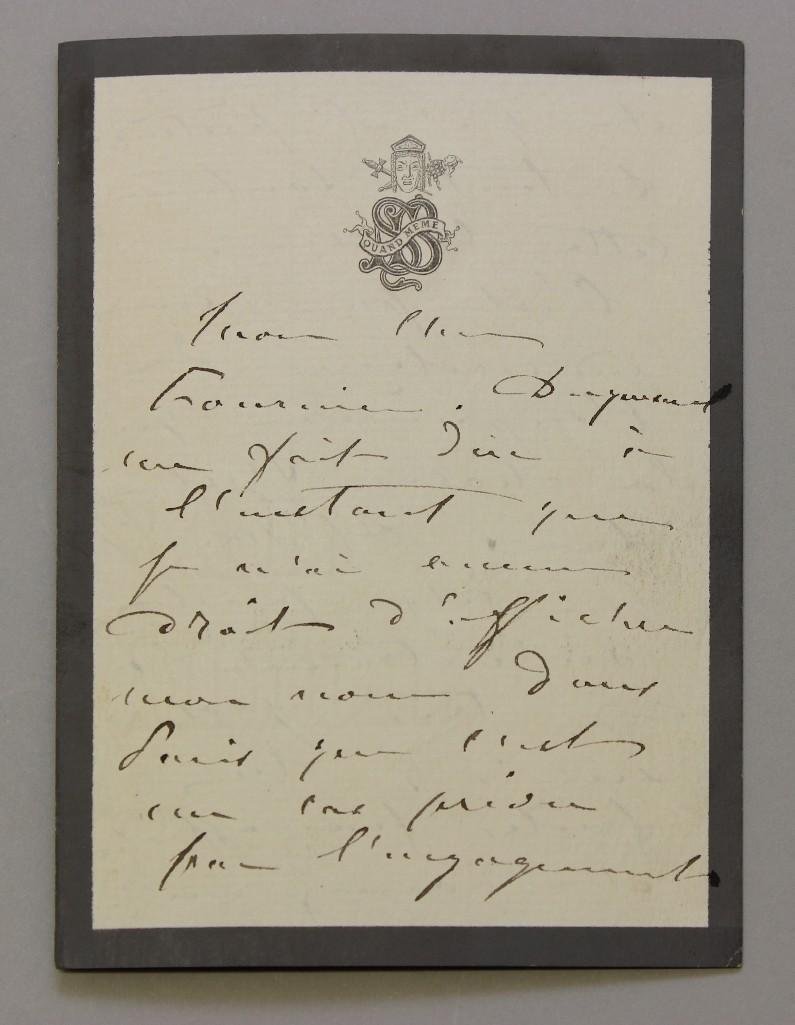 QUAND MEME
SB
Mon cher
Fournier.
me fait dire à
l'instant que
je n'ai aucun
droit d'afficher
mon nom dans
Paris que c'est
un cas prévu
par l'engagement